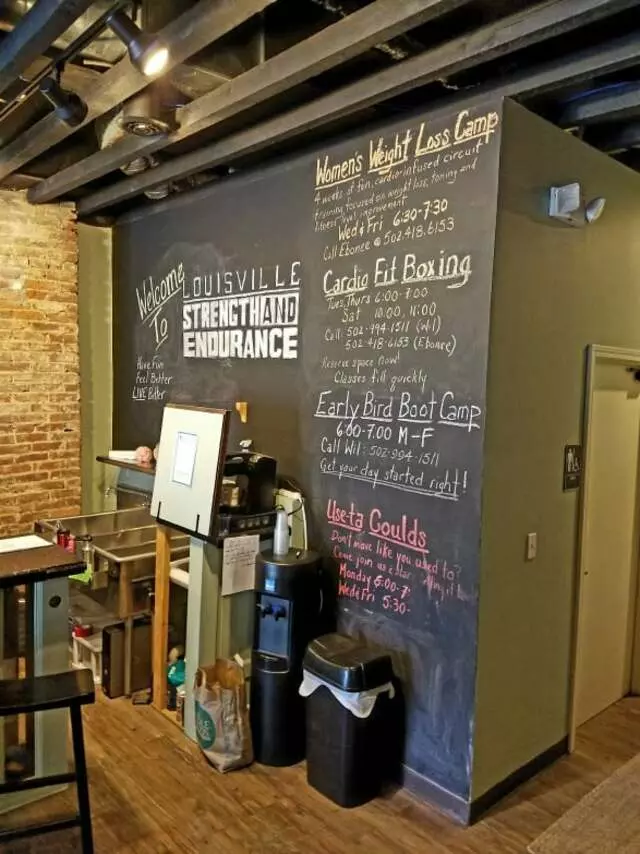 Welcome
To
LOUISVILLE
STRENGTH AND
ENDURANCE
Have Fun
Feel Better
LIVE Better
Women's Weight Loss Camp
4 weeks of fun, cardio-infused circuit
training, focused on weight loss, toning and
fitness level improvement
Wed & Fri 6:30-7:30
Call Ebonee @ 502.418.6153
Cardio Fit Boxing
Tues, Thurs 6:00-7:00
Sat 10:00, 11:00
Call: 502-994-1511 (Wil)
502-418-6153 (Ebonee)
Reserve space now!
Classes fill quickly
Early Bird Boot Camp
6:00-7:00 M-F
Call Wil: 502-994-1511
Get your day started right!
Use-ta Coulds
Don't move like you used to?
Come join us
Monday 6:00-7
Wed & Fri 5:30-